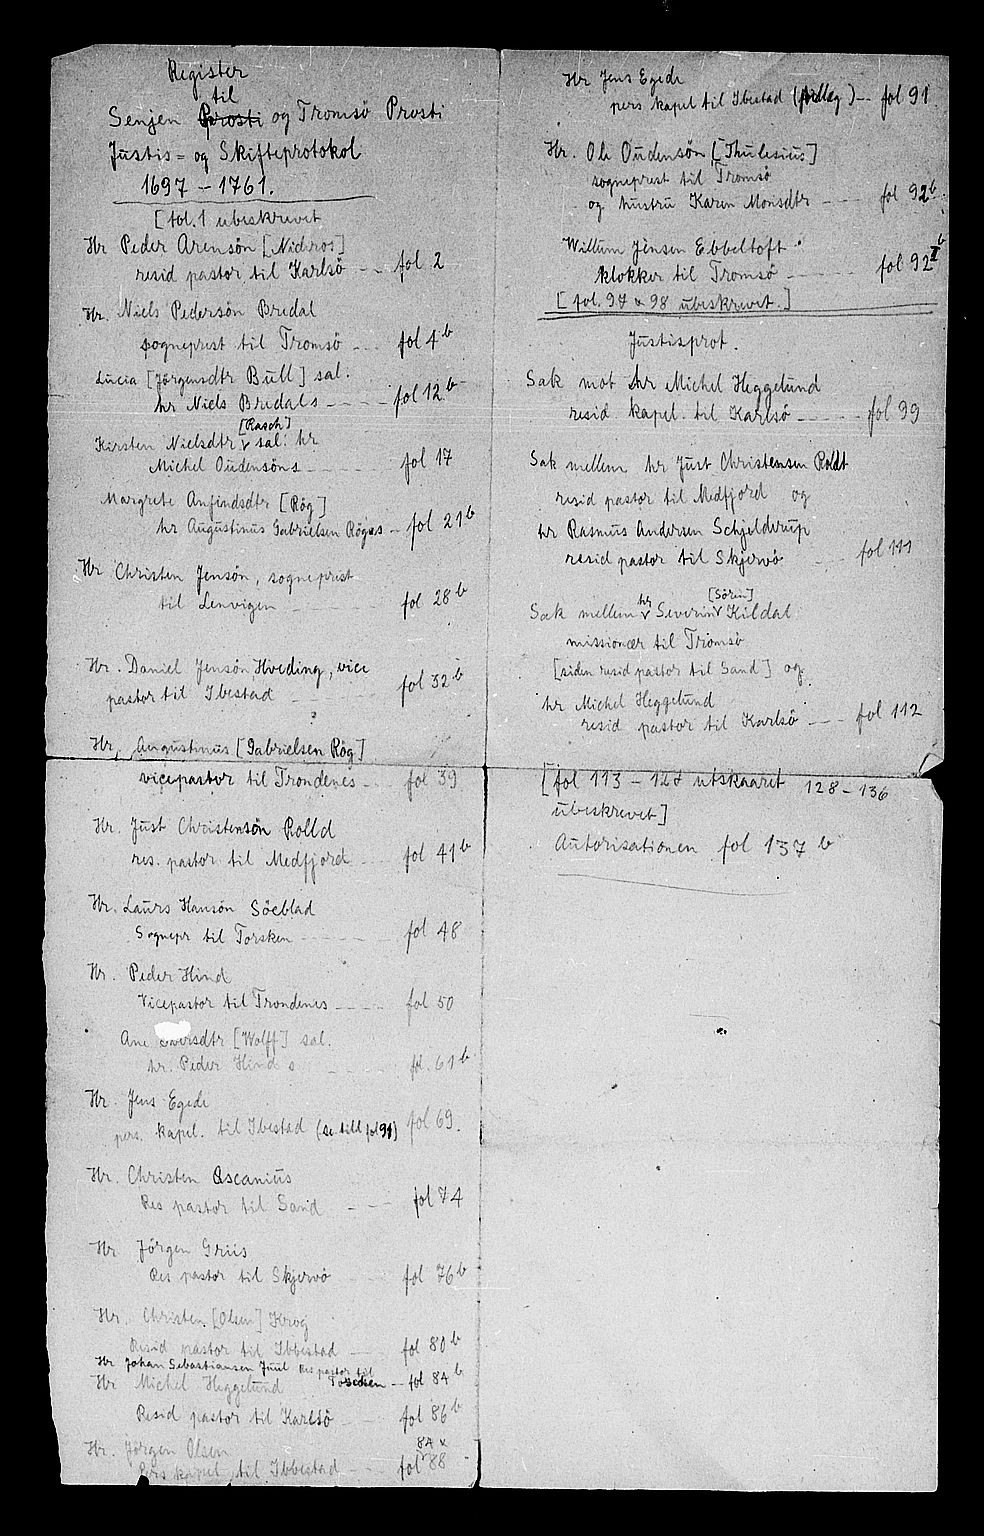 Register
til
Senjen Prosti og Tromsö Prosti
Justis- og Skifteprotokol
1697 - 1761.
[fol. 1 ubeskrevet
Hr Peder Arensön [Nidros]
resid pastor til Karlsö - - fol 2
Hr. Niels Pedersön Bredal
sogneprest til Tromsö - - fol 4 b
Lucia [Jörgensdtr Bull] sal.
hr Niels Bredals - - - - fol 12 b
[Rasch]
Kirsten Nielsdtr sal. hr
Michel Oudensöns - - - - fol 17
Margrete Anfindsdtr [Rög]
hr Augustinus Gabrielsen Rögs - fol 21 b
Hr Christen Jensön, sogneprest
til Lenvigen - - - - fol 28 b
Hr. Daniel Jensön Hveding, vice
pastor til Ibestad - - - - fol 32 b
Hr. Augustinus [Gabrielsen Rög]
vicepastor til Trondenes - - fol 39
Hr. Just Christensön Rolld
res. pastor til Medfjord - - fol 41 b
Hr. Laurs Hansön Söeblad
Sognepr til Torsken - - - - fol 48
Hr. Peder Hind
Vicepastor til Trondenes - - - fol 50
Ane Iversdtr [Wolff] sal.
hr. Peder Hinds - - - fol. 61 b
Hr. Jens Egede
pers. kapel. til Ibestad (se till fol 91) fol 69.
Hr. Christen Ascanius
Res pastor til Sand - - - fol 74
Hr Jörgen Griis
Res pastor til Skjervö - - - fol 76 b
Hr. Christen [Olsen] Krog
Resid pastor til Ibbestad - - fol 80 b
Hr Johan Sebastiansen Juul Res pastor til
Torsken - fol 84 b
Hr Michel Heggelund
Resid pastor til Karlsö - - fol 86 b
84 x
Hr. Jörgen Olsen
Pers kapel til Ibbestad - - - fol 88
Hr Jens Egede
pers kapel til Ibestad (tillæg) - fol 91.
Hr. Ole Oudensön [Thulesius]
sogneprest til Tromsö
og hustru Karen Monsdtr - - - fol 92 b
Willum Jensen Ebbeltoft
klokker til Tromsö - - - - - fol 92 b II
[fol. 97 & 98 ubeskrevet.]
Justisprot.
Sak mot hr Michel Heggelund
resid kapel. til Karlsö - - - - fol 99
Sak mellem hr Just Christensen Roldt
resid pastor til Medfjord og
hr Rasmus Andersen Schjelderup
resid pastor til Skjervö - - fol 111
[Sören]
Sak mellem hr Severin Kildal
missionær til Tromsö
[siden resid pastor til Sand] og
hr Michel Heggelund
resid pastor til Karlsö - - - fol 112
[fol 113 - 127 utskaaret 128 - 136
ubeskrevet]
Autorisationen fol 137 b